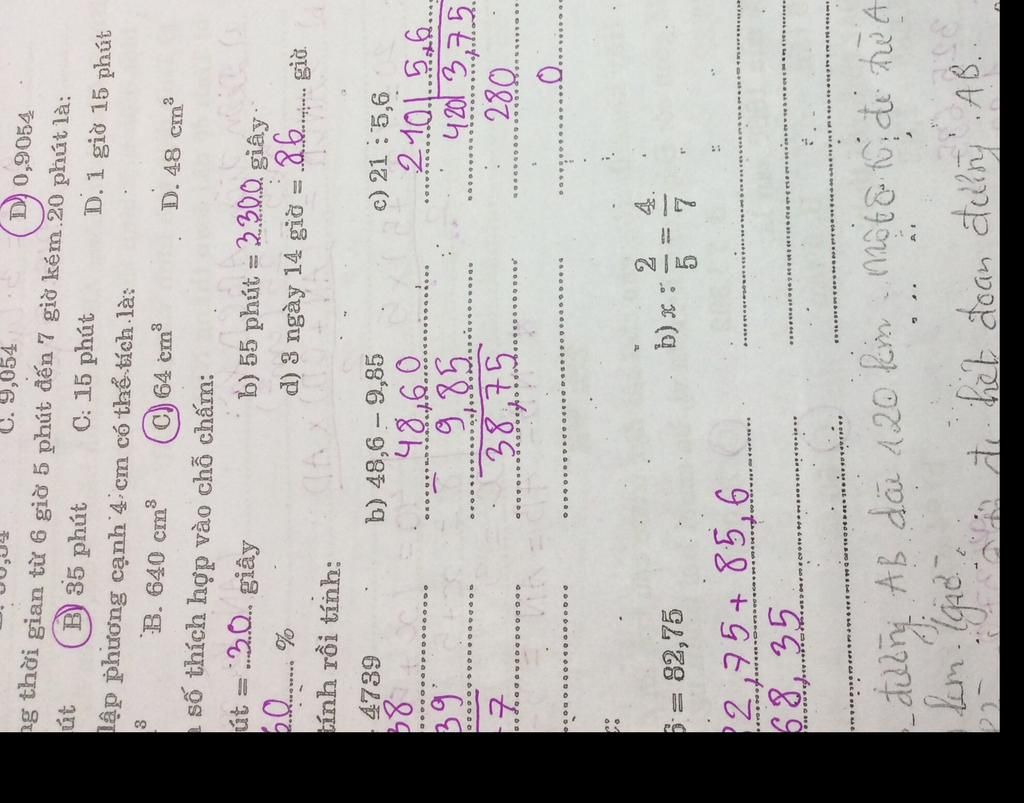 C. 9,054 D. 0,9054
ng thời gian từ 6 giờ 5 phút đến 7 giờ kém 20 phút là:
út B. 35 phút C. 15 phút D. 1 giờ 15 phút
lập phương cạnh 4 cm có thể tích là:
³ B. 640 cm³ C. 64 cm³ D. 48 cm³
số thích hợp vào chỗ chấm:
út = 30 giây b) 55 phút = 3300 giây
60 % d) 3 ngày 14 giờ = 86 giờ
tính rồi tính:
4739 b) 48,6 – 9,85 c) 21 : 5,6
38 48,60 210 5,6
39 - 9,85 420 3,75
7 38,75 280
0
6 = 82,75 b) x : 2/5 = 4/7
82,75 + 85,6
68,35
đường AB dài 120 km. Một ô tô đi từ A
đi hết đoạn đường AB.